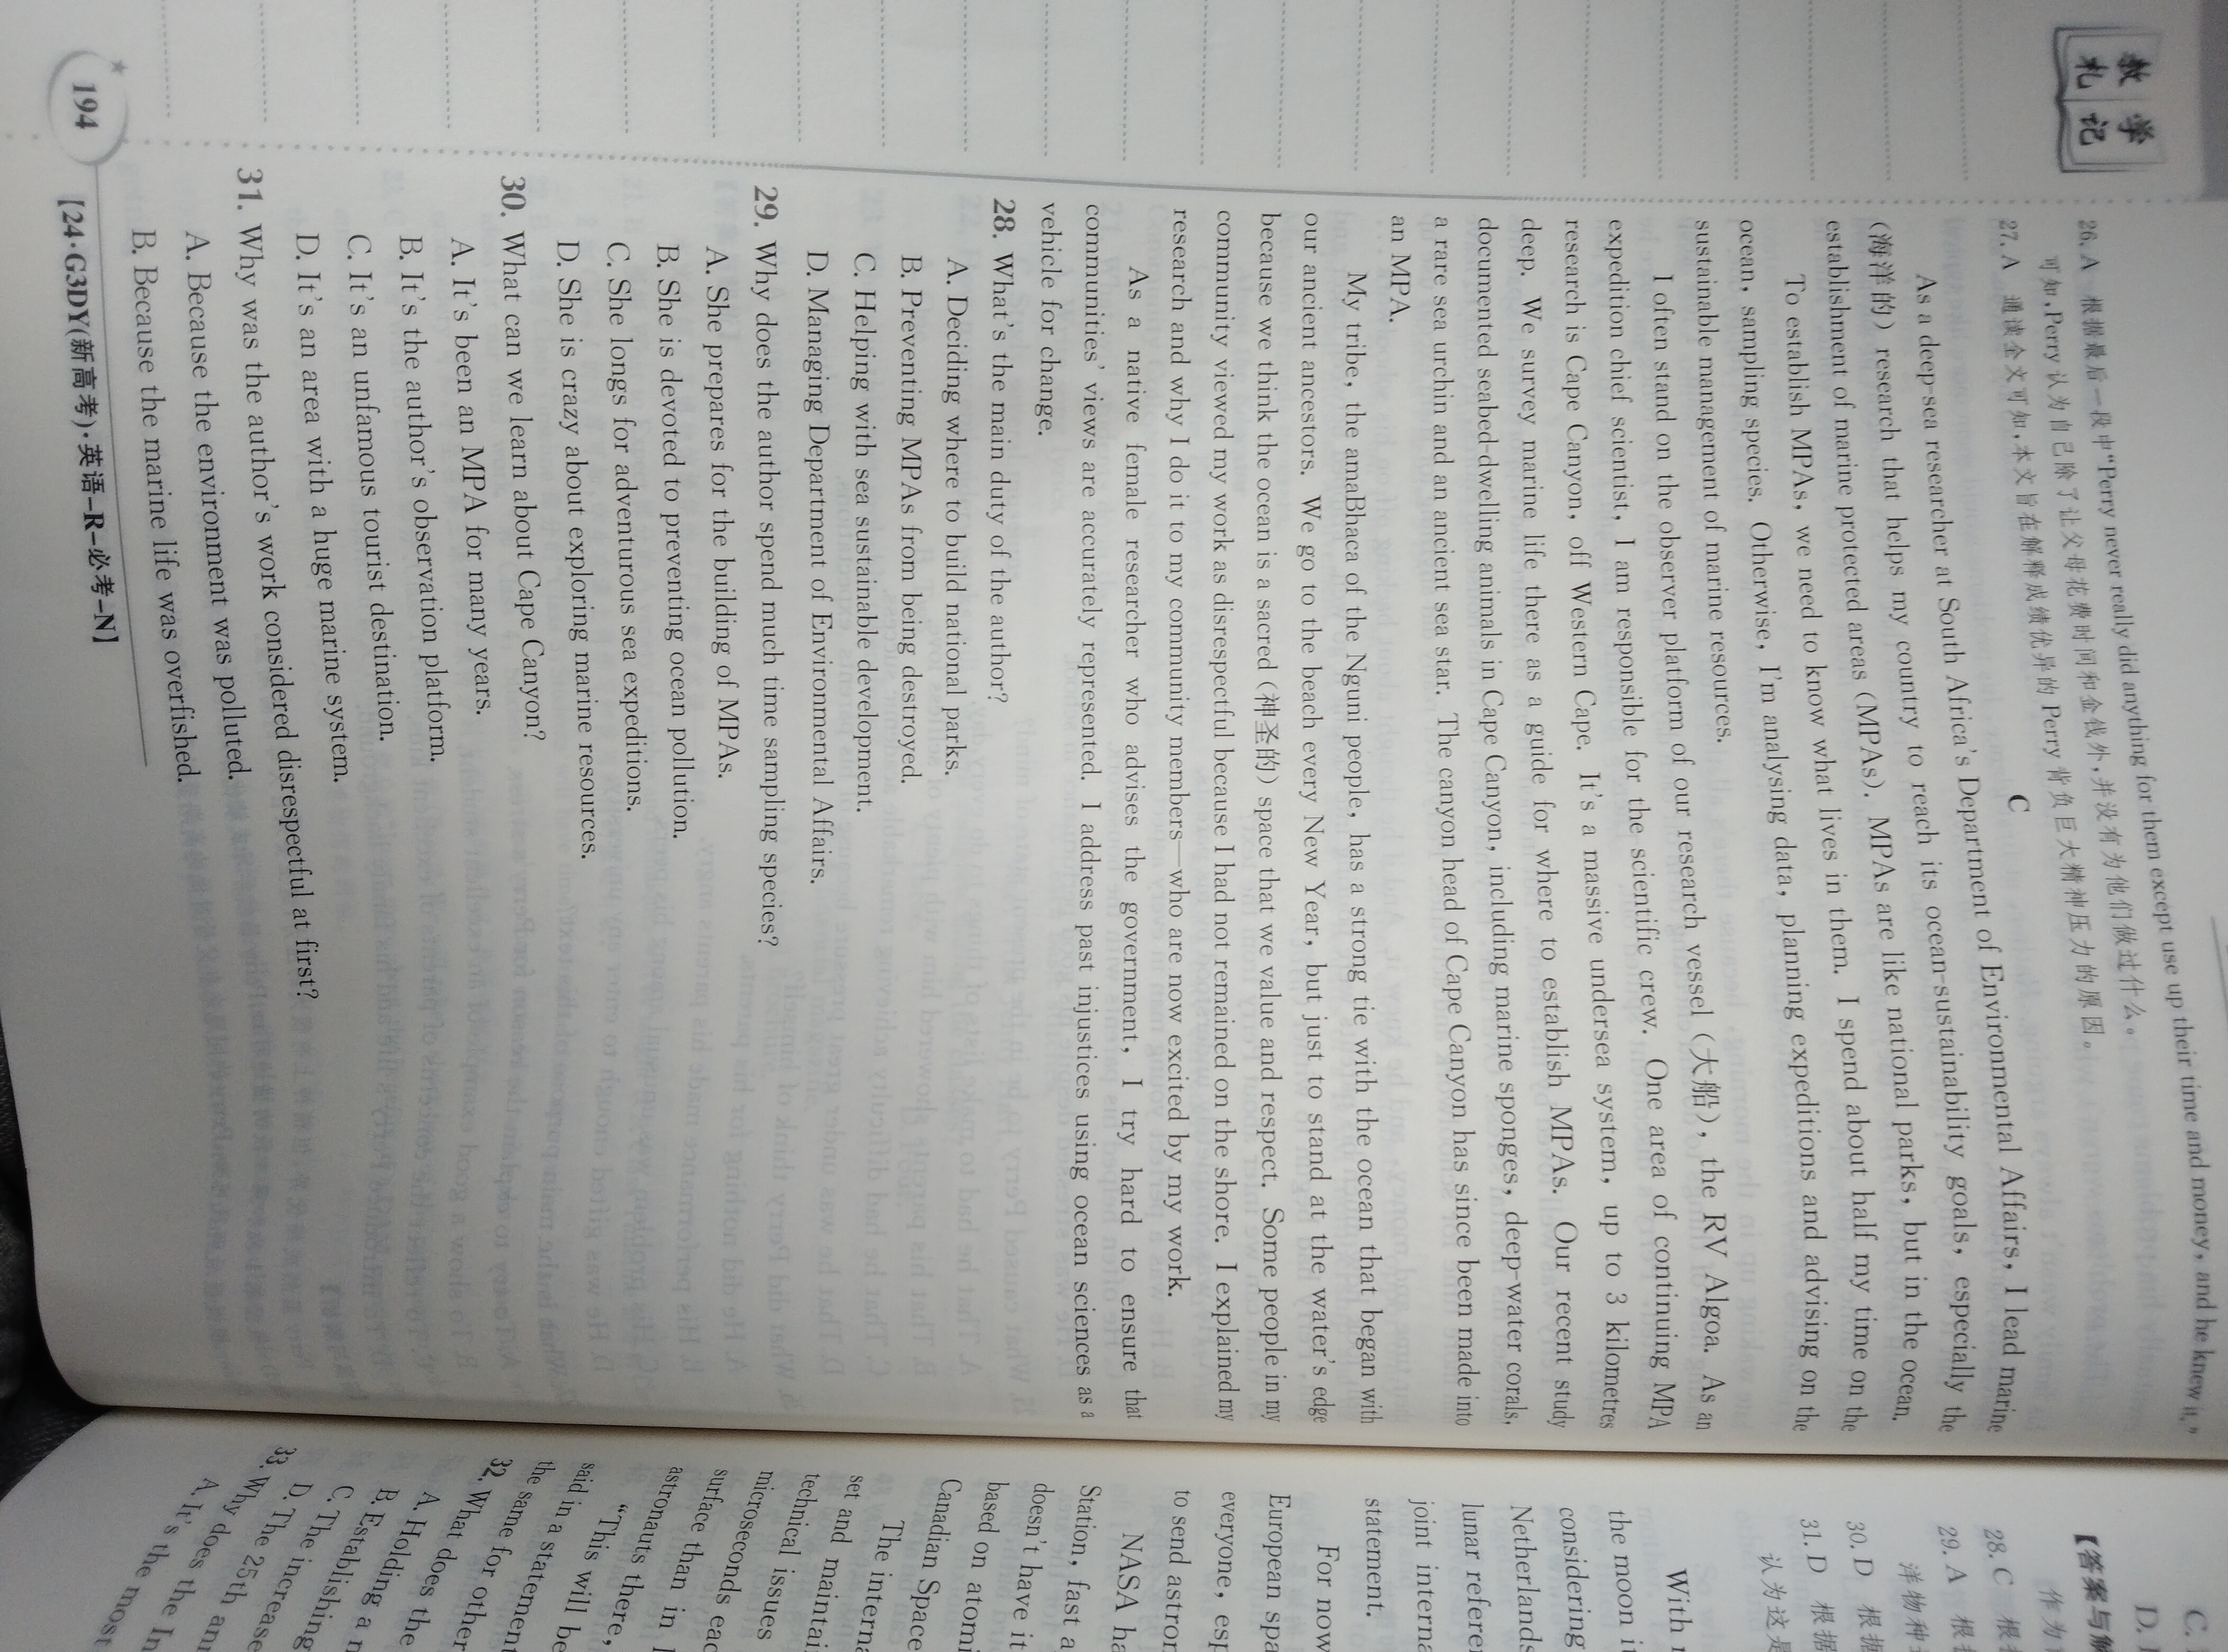 教学
札记
for them except use up their time and money, and he knew it,”
26. A 根据最后一段中“Perry never really did anything
可知,Perry认为自己除了让父母花费时间和金钱外,并没有为他们做过什么。
27. A 通读全文可知,本文旨在解释成绩优异的Perry背负巨大精神压力的原因。
C
As a deep-sea researcher at South Africa's Department of Environmental Affairs, I lead marine
(海洋的) research that helps my country to reach its ocean-sustainability goals, especially the
establishment of marine protected areas (MPAs). MPAs are like national parks, but in the ocean.
To establish MPAs, we need to know what lives in them. I spend about half my time on the
ocean, sampling species. Otherwise, I'm analysing data, planning expeditions and advising on the
sustainable management of marine resources.
I often stand on the observer platform of our research vessel (大船), the RV Algoa. As an
expedition chief scientist, I am responsible for the scientific crew. One area of continuing MPA
research is Cape Canyon, off Western Cape. It's a massive undersea system, up to 3 kilometres
deep. We survey marine life there as a guide for where to establish MPAs. Our recent study
documented seabed-dwelling animals in Cape Canyon, including marine sponges, deep-water corals,
a rare sea urchin and an ancient sea star. The canyon head of Cape Canyon has since been made into
an MPA.
My tribe, the amaBhaca of the Nguni people, has a strong tie with the ocean that began with
our ancient ancestors. We go to the beach every New Year, but just to stand at the water's edge
because we think the ocean is a sacred (神圣的) space that we value and respect. Some people in my
community viewed my work as disrespectful because I had not remained on the shore. I explained my
research and why I do it to my community members—who are now excited by my work.
As a native female researcher who advises the government, I try hard to ensure that
communities' views are accurately represented. I address past injustices using ocean sciences as a
vehicle for change.
28. What's the main duty of the author?
A. Deciding where to build national parks.
B. Preventing MPAs from being destroyed.
C. Helping with sea sustainable development.
D. Managing Department of Environmental Affairs.
29. Why does the author spend much time sampling species?
A. She prepares for the building of MPAs.
B. She is devoted to preventing ocean pollution.
C. She longs for adventurous sea expeditions.
D. She is crazy about exploring marine resources.
30. What can we learn about Cape Canyon?
A. It's been an MPA for many years.
B. It's the author's observation platform.
C. It's an unfamous tourist destination.
D. It's an area with a huge marine system.
31. Why was the author's work considered disrespectful at first?
A. Because the environment was polluted.
B. Because the marine life was overfished.
194
【24·G3DY(新高考)·英语-R-必考-N】
C.
D.
【答案与
作为
28. C 根
29. A 根
洋物种
30. D 根据
31. D 根据
认为这是
With
the moon
considering
Netherlands
lunar
joint
statement.
For now
European
everyone,
to send
NASA
Station, fast
doesn't have it
based on
Canadian Space
The
set and
technical issues
microseconds
surface than in
astronauts there,
“This will be
said in a statement
the same for other
32. What does the
A. Holding a
B. Establishing
C. The
D. The increase
33. Why does the
A. It's the most